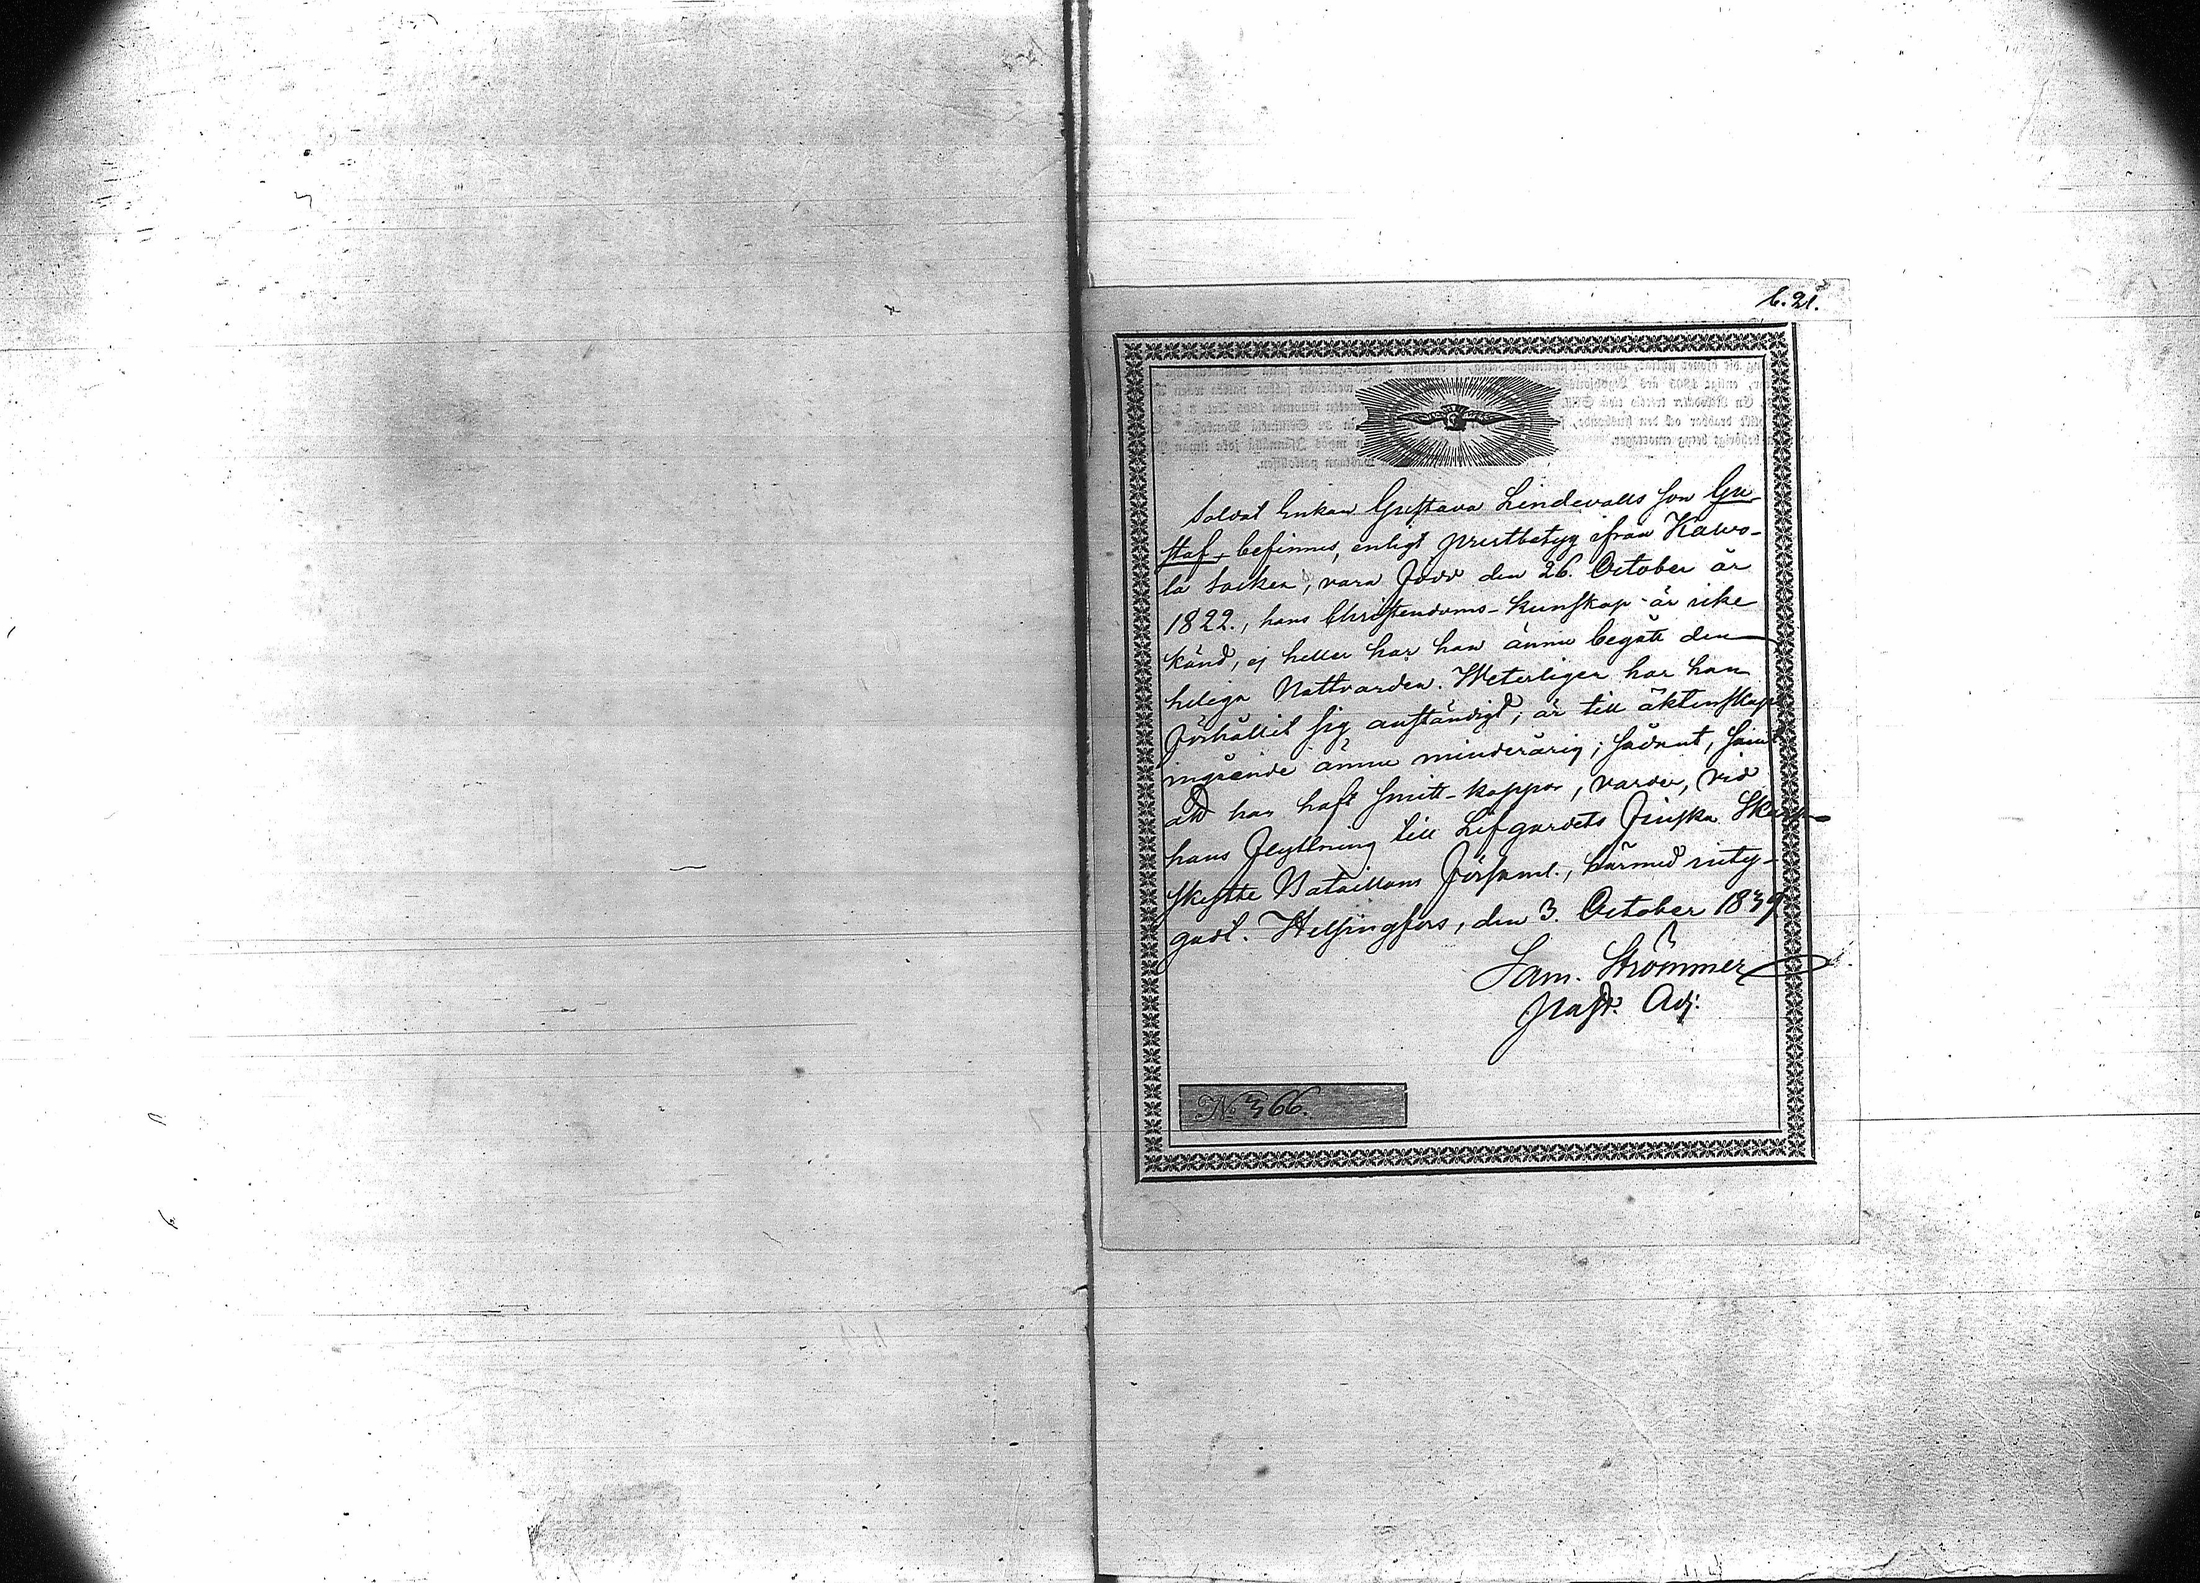 6.21.
Soldat Enkan Gustava Lindevalls son Gu-
staf, befinnes, enligt prestbetyg ifrån
la Socken, vara född den 26. October år
1822., hans Christendoms-kunskap är icke
känd, ej heller har han ännu begått den
heliga Nattvarden. Weterligen har han
förhållit sig anständigt; är till äktenskaps
ingående ännu minderårig; sådant, samt
att han haft Smitt-koppor, varder, vid
hans flyttning till Lifgardets Finska Skarp-
skytte Bataillons Församl., härmed inty-
gadt. Helsingfors, den 3. October 1839.
Sam. Strömmer
Past. Adj.
No 366.